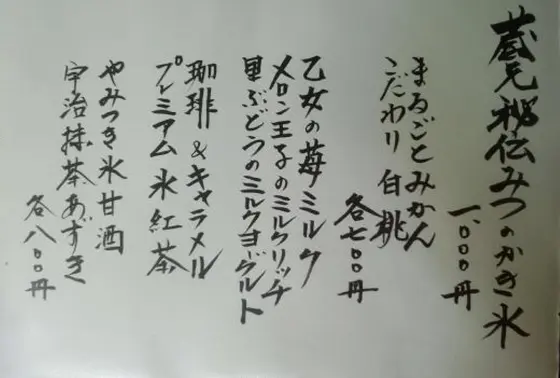 蔵元秘伝みつのかき氷
一、〇〇〇円
まるごとみかん
こだわり白桃
各七〇〇円
乙女の苺ミルク
メロン王子のミルクリッチ
里ぶどうのミルクヨーグルト
珈琲&キャラメル
プレミアム氷紅茶
やみつき氷甘酒
宇治抹茶あずき
各八〇〇円